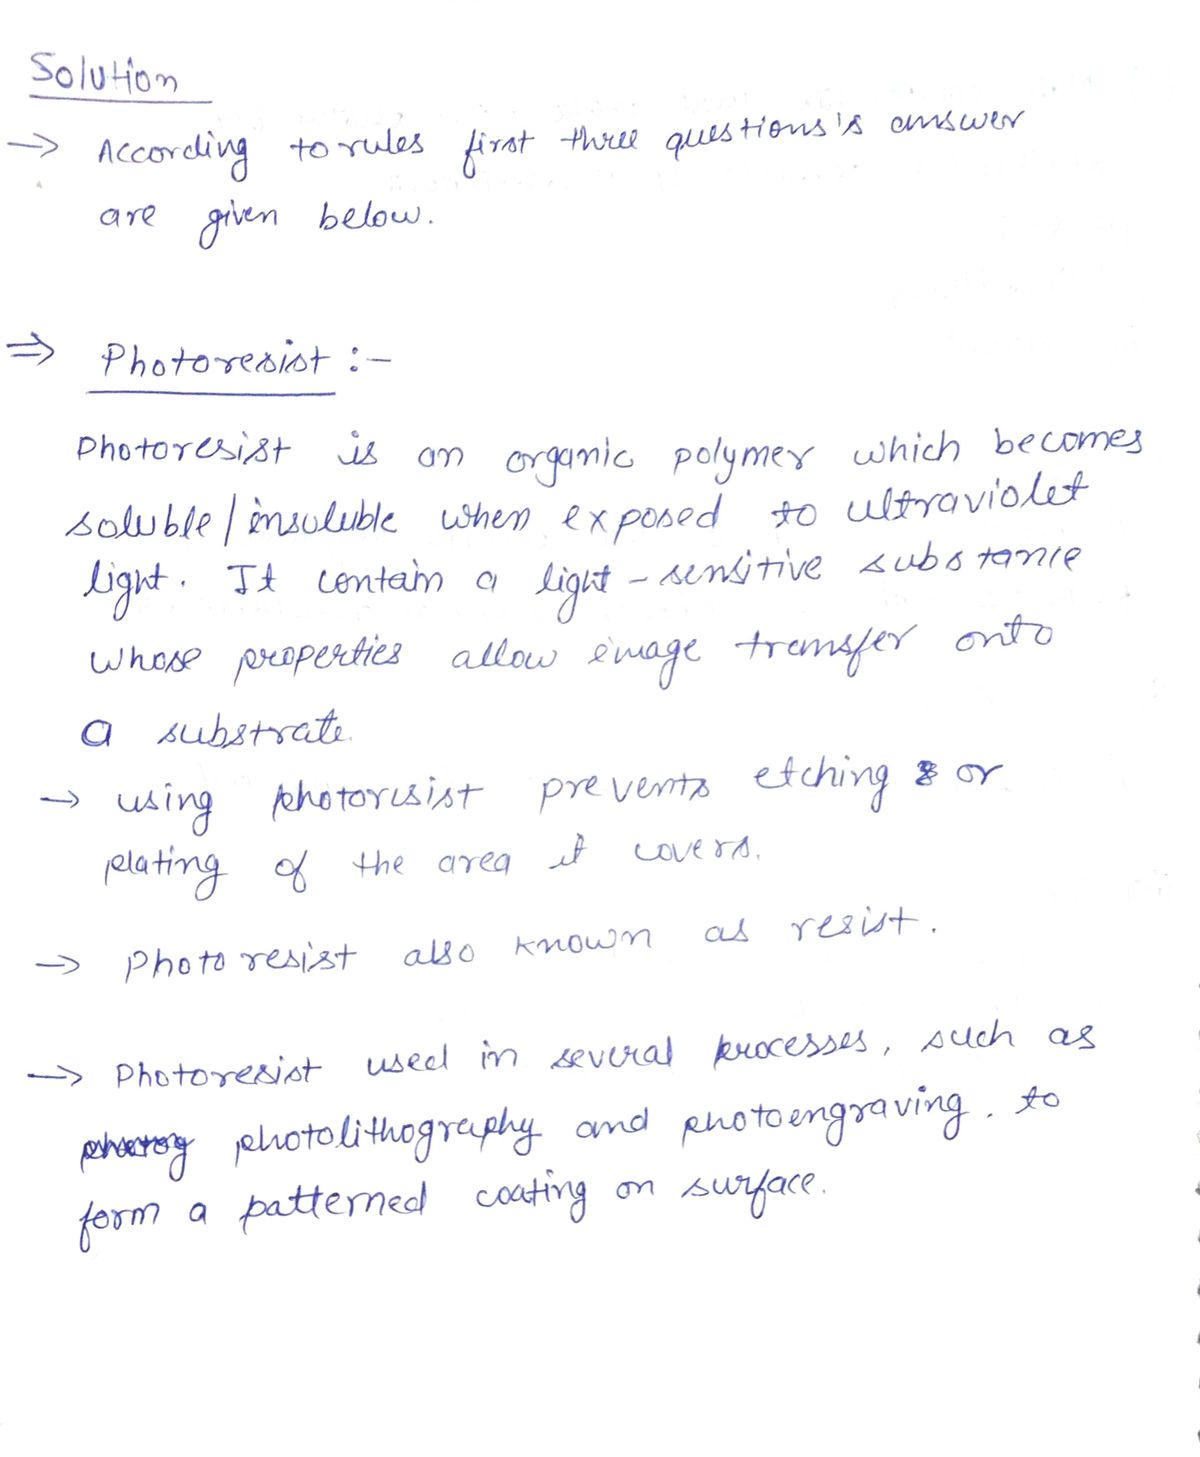 Solution
→ According to rules first three questions's answer
are given below.
⇒ Photoresist :-
Photoresist is an organic polymer which becomes
soluble/insuluble when exposed to ultraviolet
light. It contain a light-sensitive substance
whose properties allow image transfer onto
a substrate.
→ using photoresist prevents etching or
plating of the area it covers.
→ Photoresist also known as resist.
→ Photoresist used in several processes, such as
photolithography and photoengraving. to
form a patterned coating on surface.